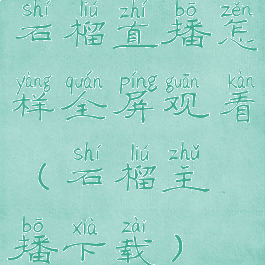 shí liú zhí bō zěn
石榴直播怎
yàng quán píng guān kàn
样全屏观看
shí liú zhǔ
（石榴主
bō xià zài
播下载）